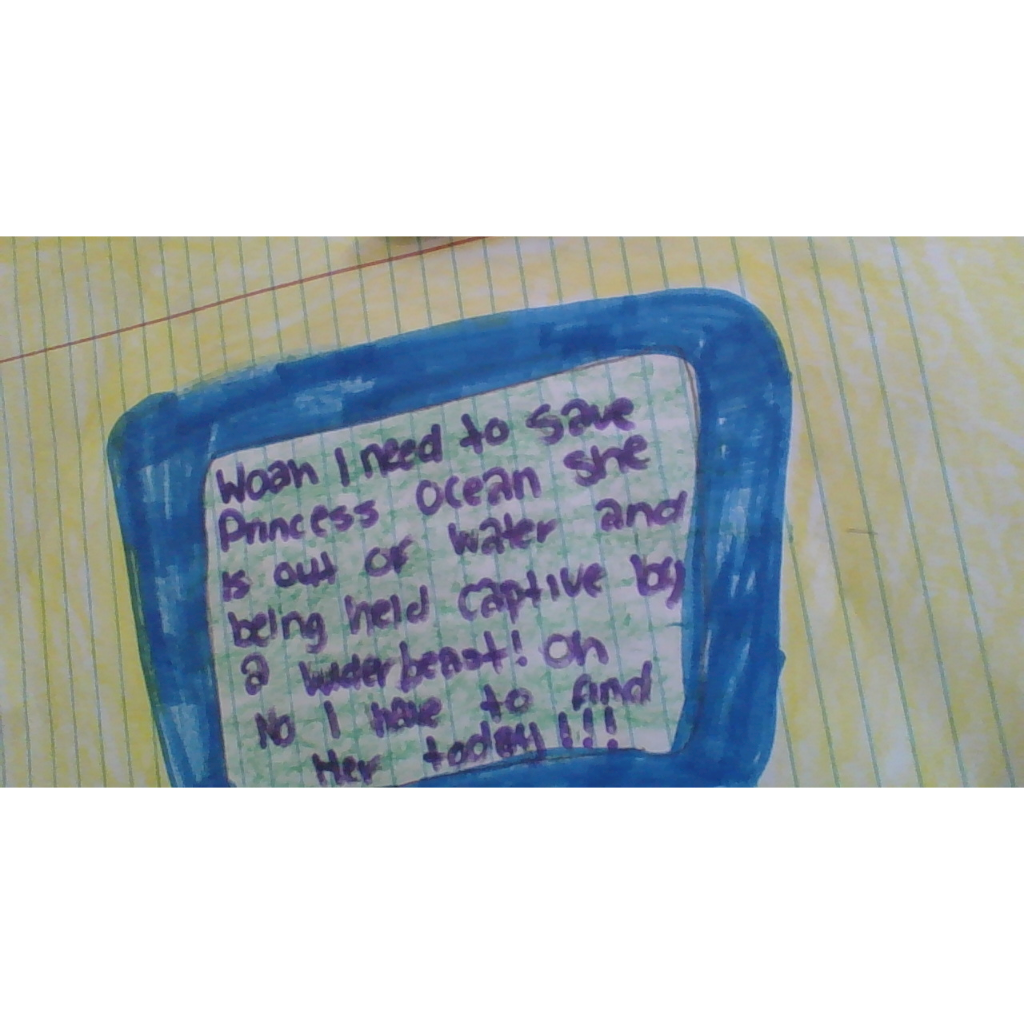 Woah I need to save
Princess Ocean She
Is out of water and
being held captive by
a waterbeast! Oh
No I have to find
Her today!!!